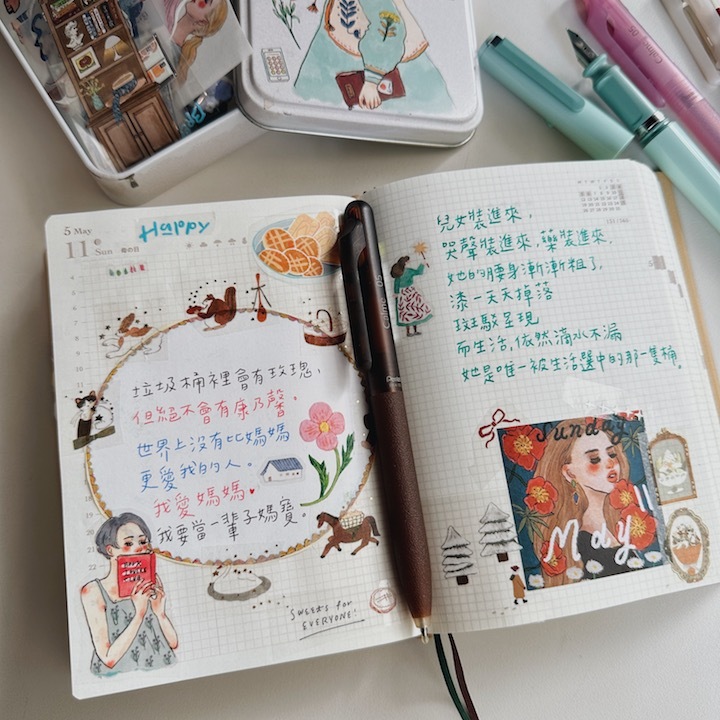 5 May
11 Sun 母の日
Happy
垃圾桶裡會有玫瑰、
但絕不會有康乃馨。
世界上沒有比媽媽
更愛我的人。
我愛媽媽
我要當一輩子媽寶。
SWEETS for
EVERYONE!
兒女裝進來,
哭聲裝進來,藥裝進來,
她的腰身漸漸粗了,
漆一天天掉落
斑駁呈現
而生活,依然滴水不漏
她是唯一被生活選中的那一隻桶。
131/365
Sunday
11
May
Calme
Pentel
Calme 05